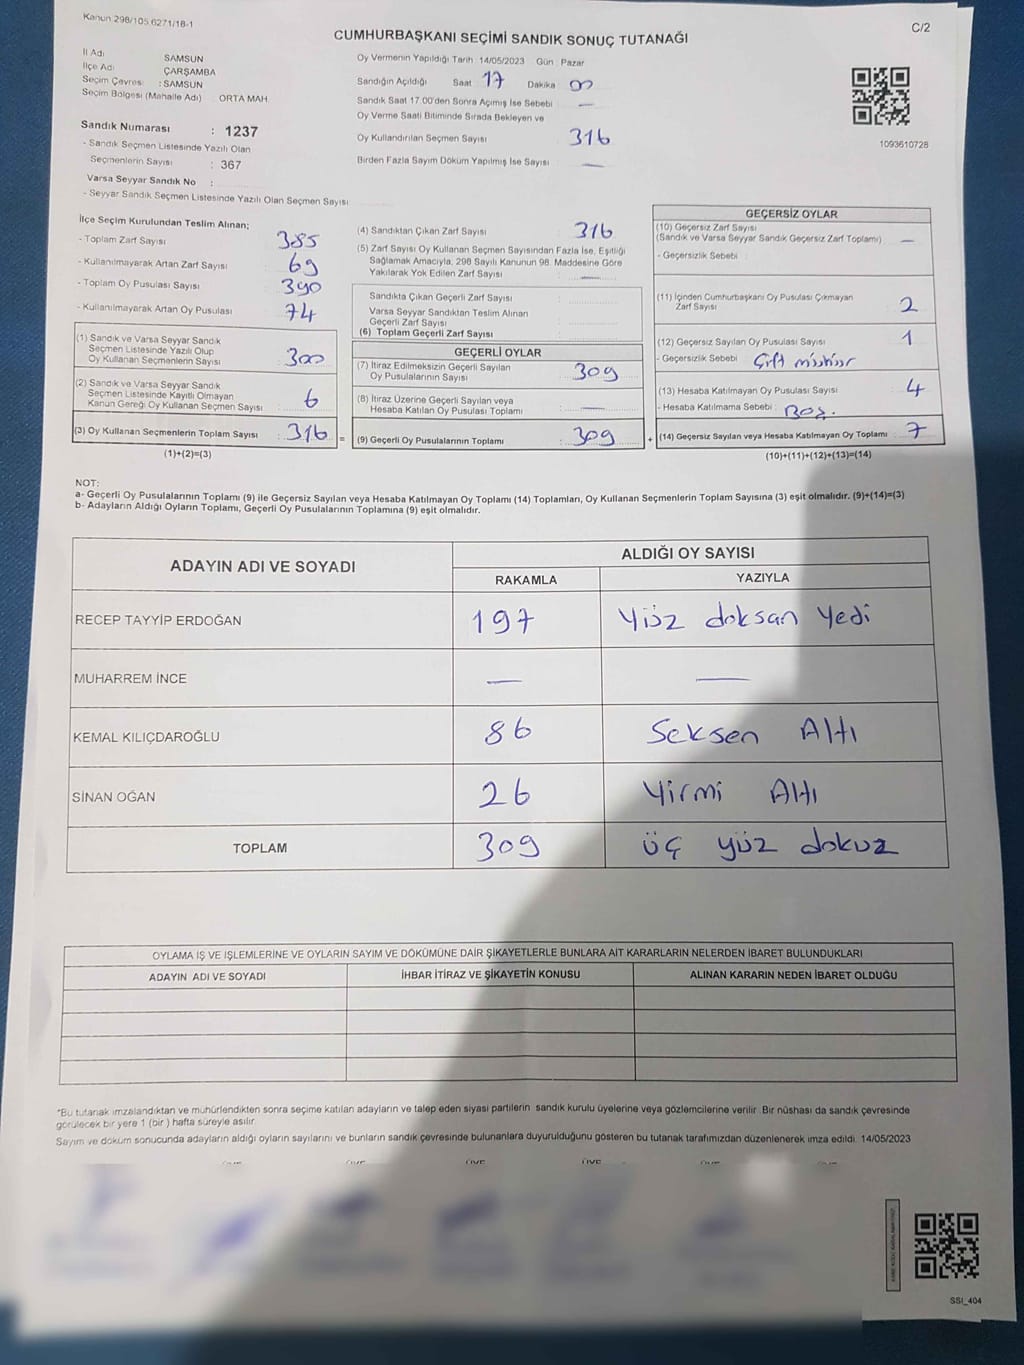 Kanun 298/105.6271/18-1
C/2
CUMHURBAŞKANI SEÇİMİ SANDIK SONUÇ TUTANAĞI
İl Adı SAMSUN
İlçe Adı ÇARŞAMBA
Seçim Çevresi : SAMSUN
Seçim Bölgesi (Mahalle Adı) ORTA MAH.
Sandık Numarası : 1237
- Sandık Seçmen Listesinde Yazılı Olan
Seçmenlerin Sayısı : 367
Varsa Seyyar Sandık No :
- Seyyar Sandık Seçmen Listesinde Yazılı Olan Seçmen Sayısı
Oy Vermenin Yapıldığı Tarih 14/05/2023 Gün : Pazar
Sandığın Açıldığı Saat 17 Dakika 00
Sandık Saat 17.00'den Sonra Açımış İse Sebebi —
Oy Verme Saati Bitiminde Sırada Bekleyen ve
Oy Kullandırılan Seçmen Sayısı 316
Birden Fazla Sayım Döküm Yapılmış İse Sayısı —
1093610728
İlçe Seçim Kurulundan Teslim Alınan;
- Toplam Zarf Sayısı 385
- Kullanılmayarak Artan Zarf Sayısı 69
- Toplam Oy Pusulası Sayısı 390
- Kullanılmayarak Artan Oy Pusulası 74
(1) Sandık ve Varsa Seyyar Sandık
Seçmen Listesinde Yazılı Olup
Oy Kullanan Seçmenlerin Sayısı 300
(2) Sandık ve Varsa Seyyar Sandık
Seçmen Listesinde Kayıtlı Olmayan
Kanun Gereği Oy Kullanan Seçmen Sayısı 6
(3) Oy Kullanan Seçmenlerin Toplam Sayısı : 316 =
(1)+(2)=(3)
(4) Sandıktan Çıkan Zarf Sayısı 316
(5) Zarf Sayısı Oy Kullanan Seçmen Sayısından Fazla İse, Eşitliği
Sağlamak Amacıyla, 298 Sayılı Kanunun 98. Maddesine Göre
Yakılarak Yok Edilen Zarf Sayısı : —
Sandıkta Çıkan Geçerli Zarf Sayısı :
Varsa Seyyar Sandıktan Teslim Alınan
Geçerli Zarf Sayısı
(6) Toplam Geçerli Zarf Sayısı
GEÇERLİ OYLAR
(7) İtiraz Edilmeksizin Geçerli Sayılan
Oy Pusulalarının Sayısı 309
(8) İtiraz Üzerine Geçerli Sayılan veya
Hesaba Katılan Oy Pusulası Toplamı : —
(9) Geçerli Oy Pusulalarının Toplamı : 309 +
GEÇERSİZ OYLAR
(10) Geçersiz Zarf Sayısı
(Sandık ve Varsa Seyyar Sandık Geçersiz Zarf Toplamı) —
- Geçersizlik Sebebi :
(11) İçinden Cumhurbaşkanı Oy Pusulası Çıkmayan
Zarf Sayısı 2
(12) Geçersiz Sayılan Oy Pusulası Sayısı 1
- Geçersizlik Sebebi Çift
(13) Hesaba Katılmayan Oy Pusulası Sayısı 4
- Hesaba Katılmama Sebebi : Boş.
(14) Geçersiz Sayılan veya Hesaba Katılmayan Oy Toplamı 7
(10)+(11)+(12)+(13)=(14)
NOT:
a- Geçerli Oy Pusulalarının Toplamı (9) ile Geçersiz Sayılan veya Hesaba Katılmayan Oy Toplamı (14) Toplamları, Oy Kullanan Seçmenlerin Toplam Sayısına (3) eşit olmalıdır. (9)+(14)=(3)
b- Adayların Aldığı Oyların Toplamı, Geçerli Oy Pusulalarının Toplamına (9) eşit olmalıdır.
ADAYIN ADI VE SOYADI ALDIĞI OY SAYISI
RAKAMLA YAZIYLA
RECEP TAYYİP ERDOĞAN 197 Yüz doksan yedi
MUHARREM İNCE — —
KEMAL KILIÇDAROĞLU 86 Seksen Altı
SİNAN OĞAN 26 Yirmi Altı
TOPLAM 309 üç yüz dokuz
OYLAMA İŞ VE İŞLEMLERİNE VE OYLARIN SAYIM VE DÖKÜMÜNE DAİR ŞİKAYETLERLE BUNLARA AİT KARARLARIN NELERDEN İBARET BULUNDUKLARI
ADAYIN ADI VE SOYADI İHBAR İTİRAZ VE ŞİKAYETİN KONUSU ALINAN KARARIN NEDEN İBARET OLDUĞU
*Bu tutanak imzalandıktan ve mühürlendikten sonra seçime katılan adayların ve talep eden siyasi partilerin sandık kurulu üyelerine veya gözlemcilerine verilir. Bir nüshası da sandık çevresinde
görülecek bir yere 1 (bir ) hafta süreyle asılır.
Sayım ve döküm sonucunda adayların aldığı oyların sayılarını ve bunların sandık çevresinde bulunanlara duyurulduğunu gösteren bu tutanak tarafımızdan düzenlenerek imza edildi. 14/05/2023
SSI_404